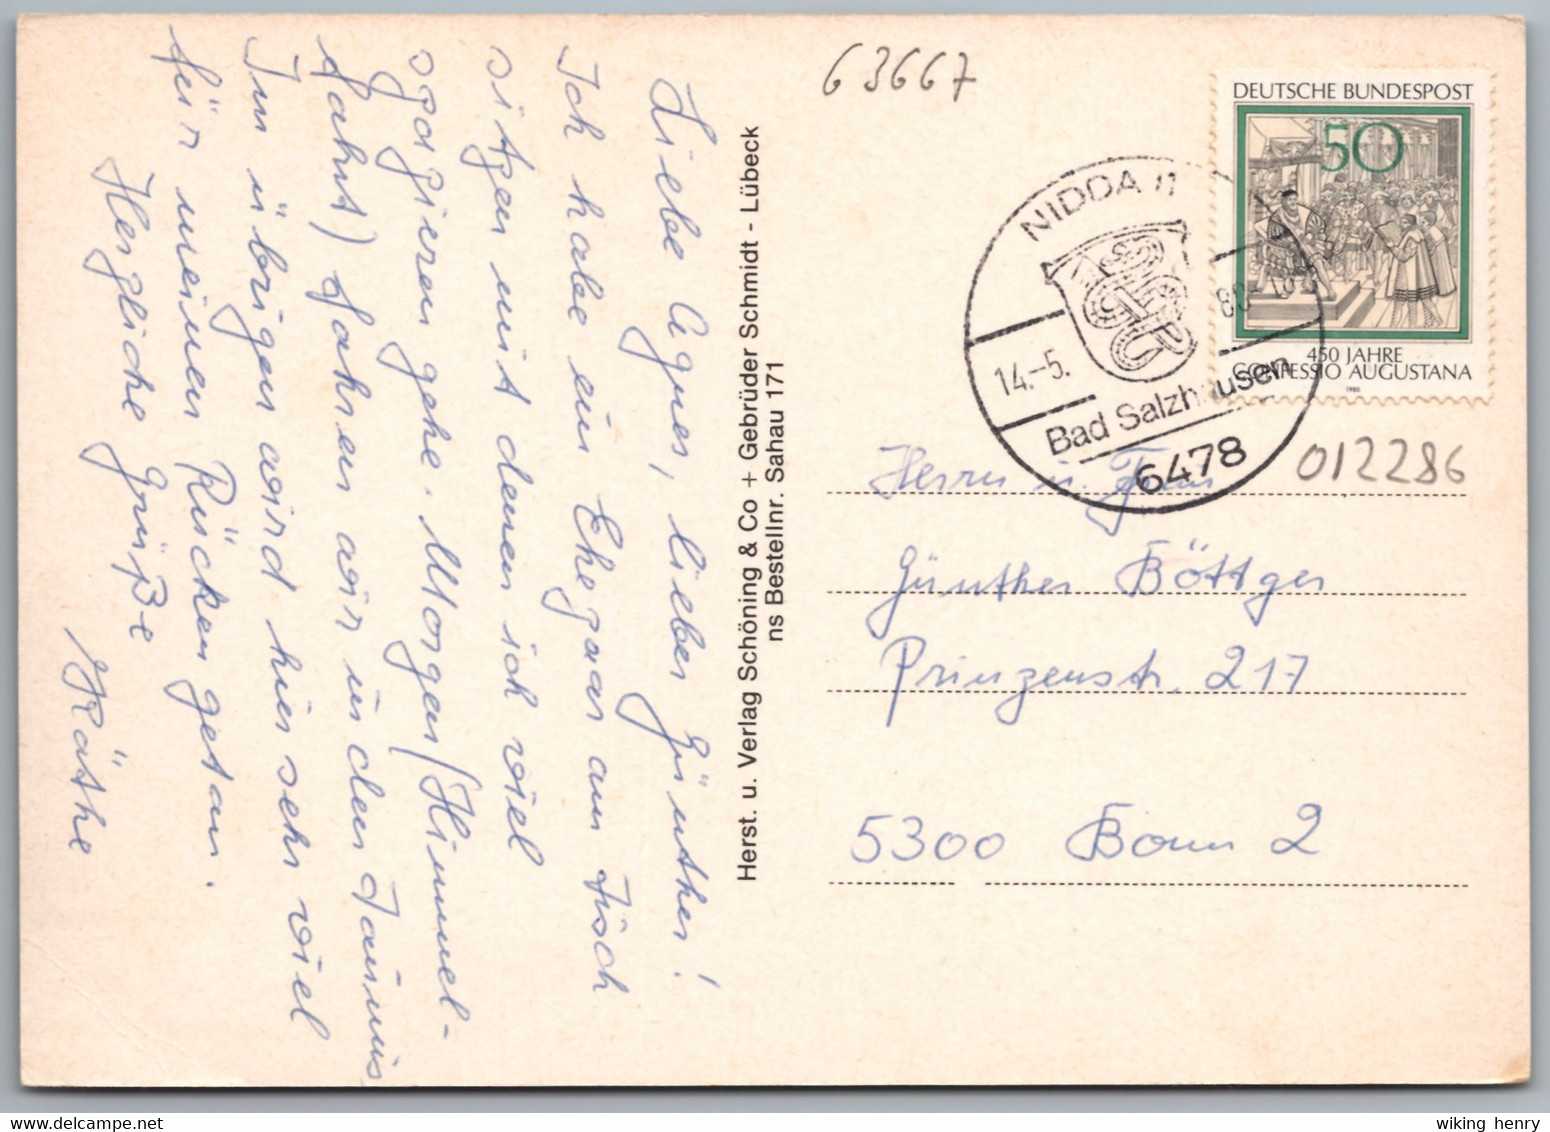 Liebe Agnes, lieber Günther!
Ich habe ein Ehepaar am Tisch
sitzen mit denen ich viel
spazieren gehe. Morgen (Himmel-
fahrt) fahren wir in den Taunus
Im übrigen wird hier sehr viel
für meinen Rücken getan.
Herzliche Grüße
Käthe
Herst. u. Verlag Schöning & Co + Gebrüder Schmidt - Lübeck
ns Bestellnr. Sahau 171
63667
DEUTSCHE BUNDESPOST
50
450 JAHRE
CONFESSIO AUGUSTANA
1980
NIDDA 11
14.-5. 80
Bad Salzhausen
6478
012286
Herrn u. Frau
Günther Böttger
Prinzenstr. 217
5300 Bonn 2
wiking henry